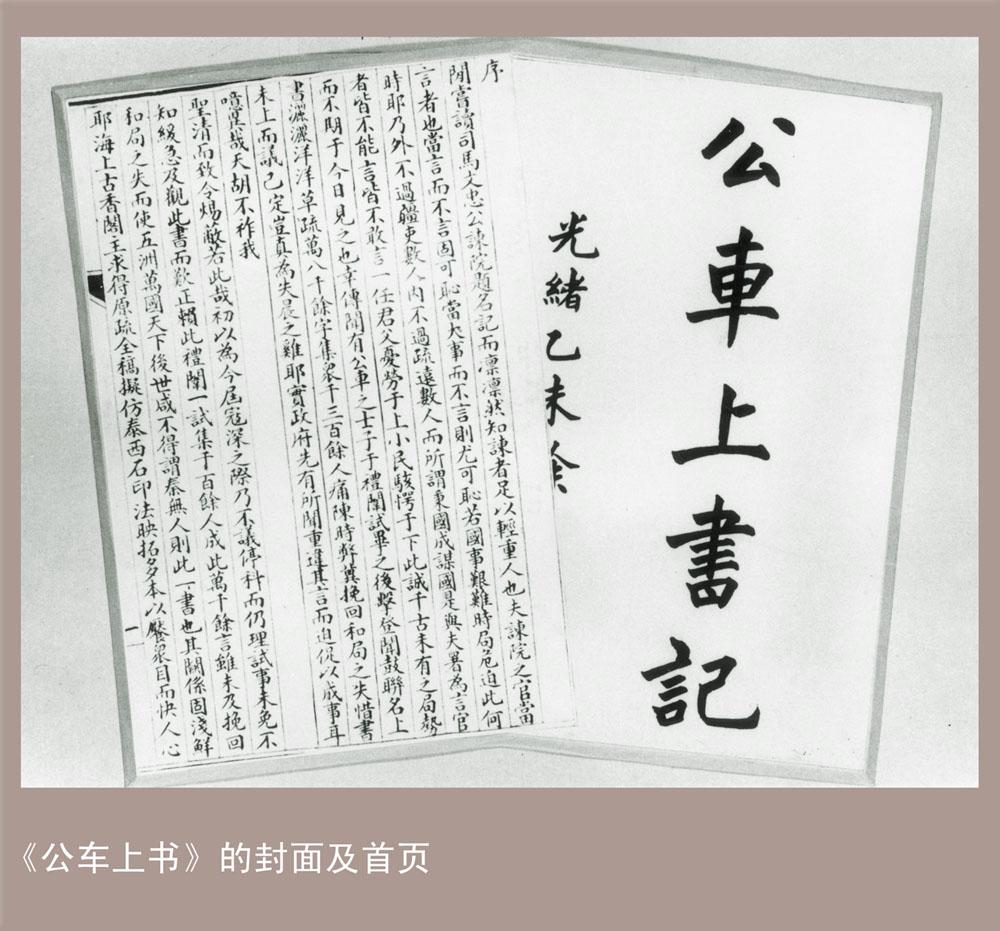 公車上書記
光緒乙未
序
閒嘗讀司馬文忠公諫院題名記而凜凜然知諫者足以輕重人也夫諫院之官當
言者也當言而不言固可恥當大事而不言則尤可恥若國事艱難時局危迫此何
時耶乃外不過疆吏數人內不過疏遠數人而所謂秉國成謀國是與夫署為言官
者皆不能言皆不敢言一任君父憂勞于上小民駭愕于下此誠千古未有之局勢
而不期于今日見之也幸傳聞有公車之士子于禮闈試畢之後擊登聞鼓聯名上
書灑灑洋洋草疏萬八千餘字集衆千三百餘人痛陳時弊冀挽回和局之失惜書
未上而議已定豈真為失晨之雞耶實政府先有所聞重違其言而迫促以成事耳
噫哉天胡不祚我
聖清而致令煬蔽若此哉初以為今屆寇深之際乃不議停科而仍理試事未免不
知緩急及觀此書而歎正賴此禮闈一試集千百餘人成此萬千餘言雖未及挽回
和局之失而使五洲萬國天下後世咸不得謂秦無人則此一書也其關係固淺鮮
耶海上古香閣主求得原疏全稿擬仿泰西石印法映拓多本以饜衆目而快人心
一
《公车上书》的封面及首页